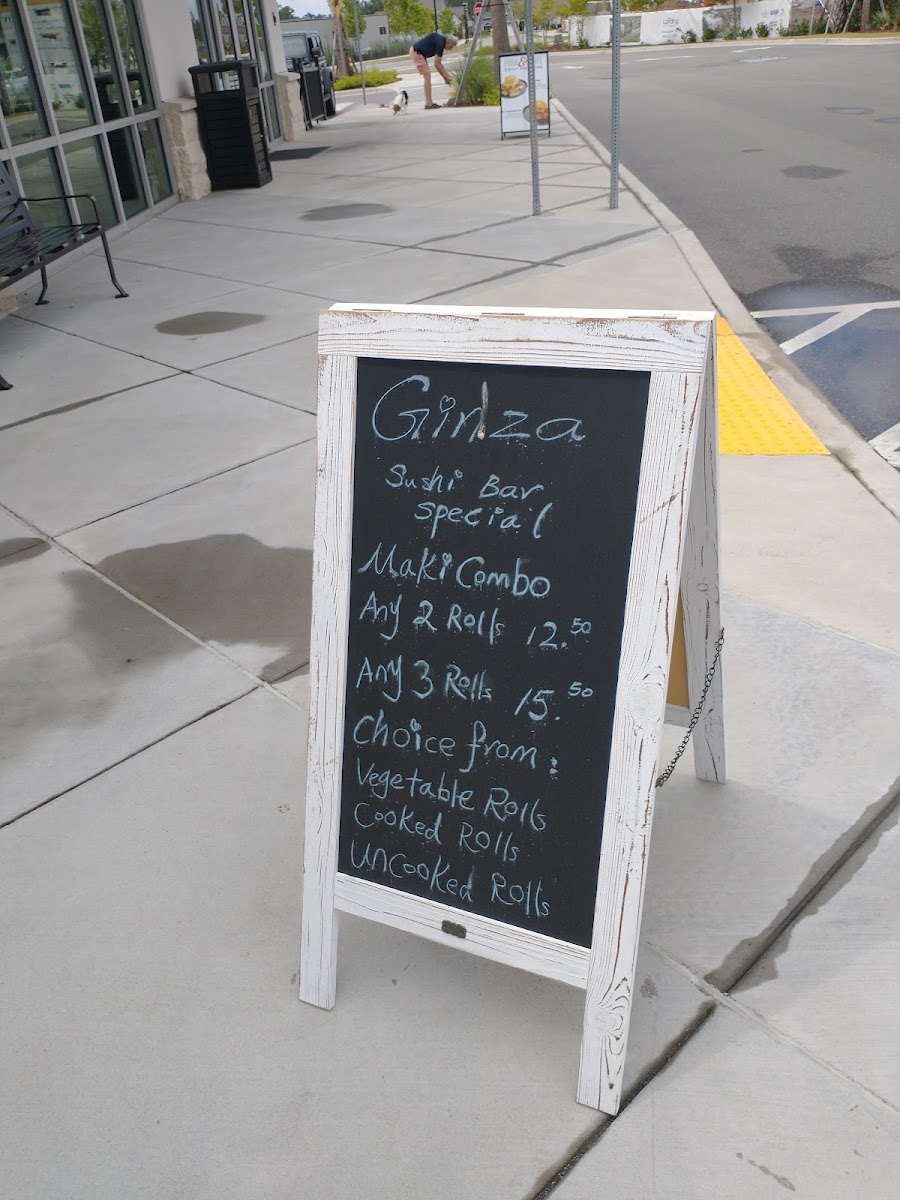 Ginza
Sushi Bar
Special
Maki Combo
Any 2 Rolls 12.50
Any 3 Rolls 15.50
Choice from:
Vegetable Rolls
Cooked Rolls
Uncooked Rolls